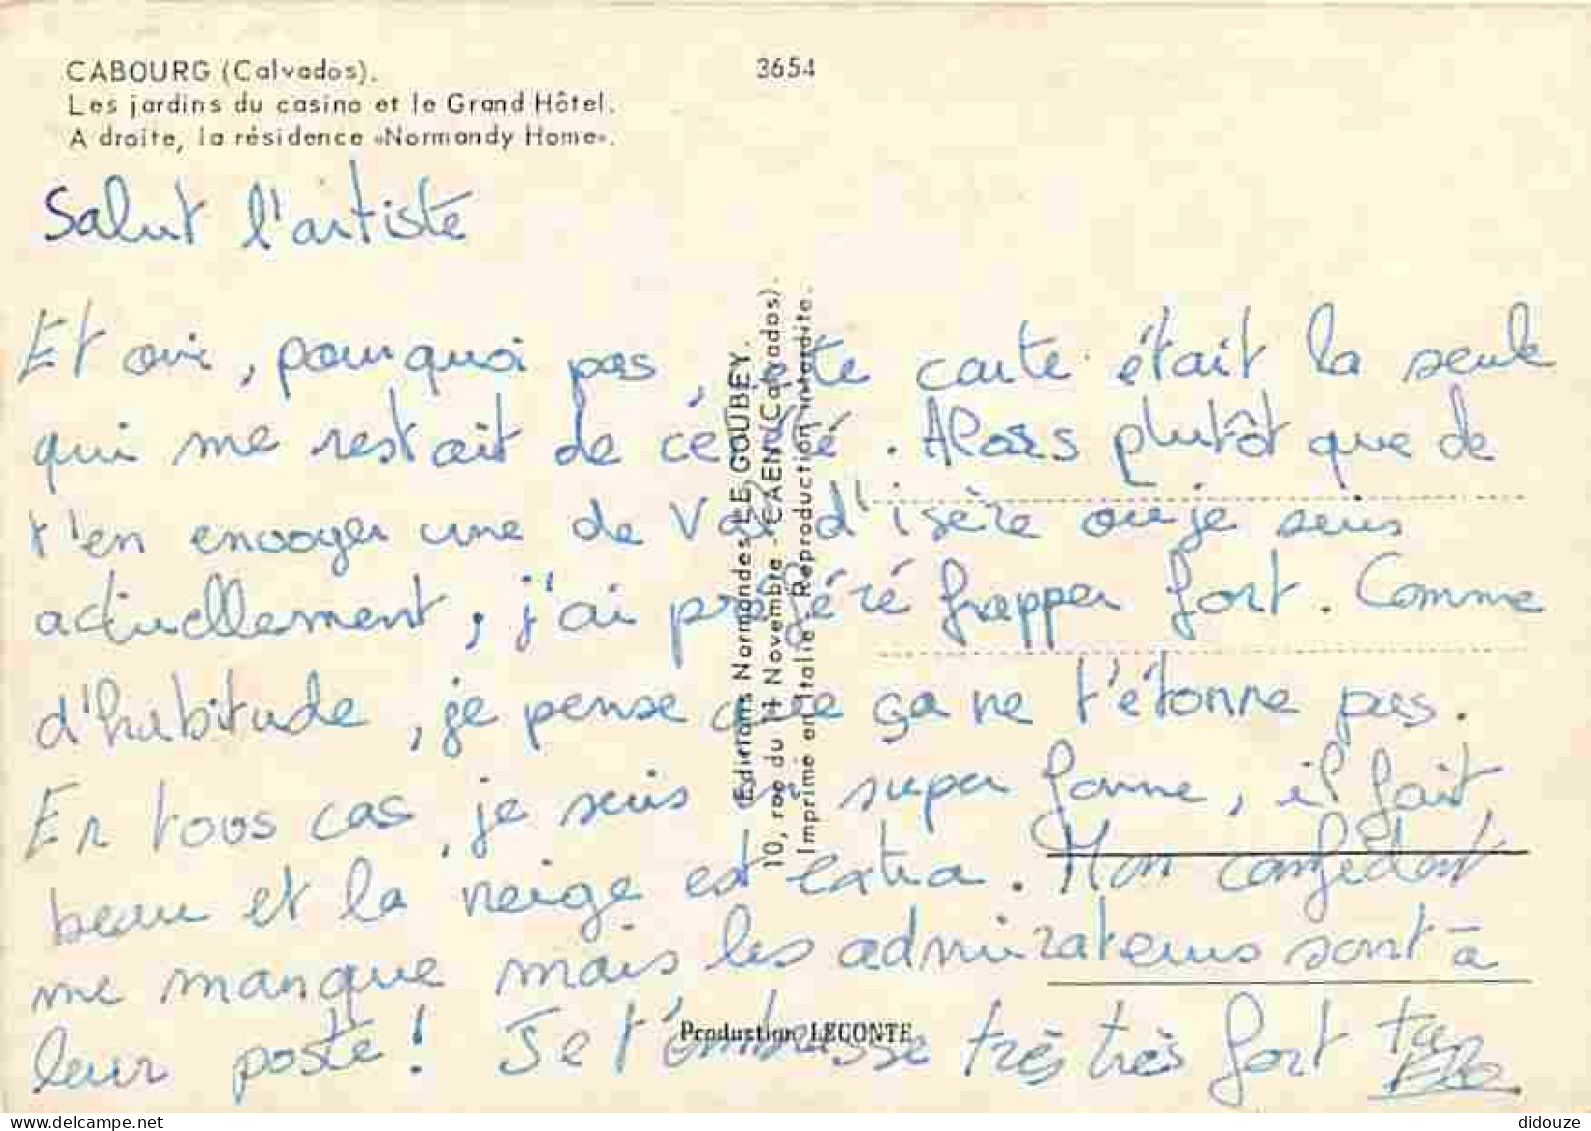 CABOURG (Calvados).
3654
Les jardins du casino et le Grand Hôtel.
A droite, la résidence «Normandy Home».
Salut l'artiste
Et oui, pourquoi pas, cette carte était la seule
qui me restait de cet été. Alors plutôt que de
t'en envoyer une de Val d'isère ou je suis
actuellement, j'ai préféré frapper fort. Comme
d'habitude, je pense que ça ne t'étonne pas.
En tous cas, je suis en super forme, il fait
beau et la neige est extra. Mon confident
me manque mais les admirateurs sont à
leur poste! Je t'embrasse très très fort ta
Editions Normandes LE GOUBEY.
10, rue du 11 Novembre - CAEN (Calvados).
Imprimé en Italie. Reproduction interdite.
Production LECONTE
delcampe.net
didouze